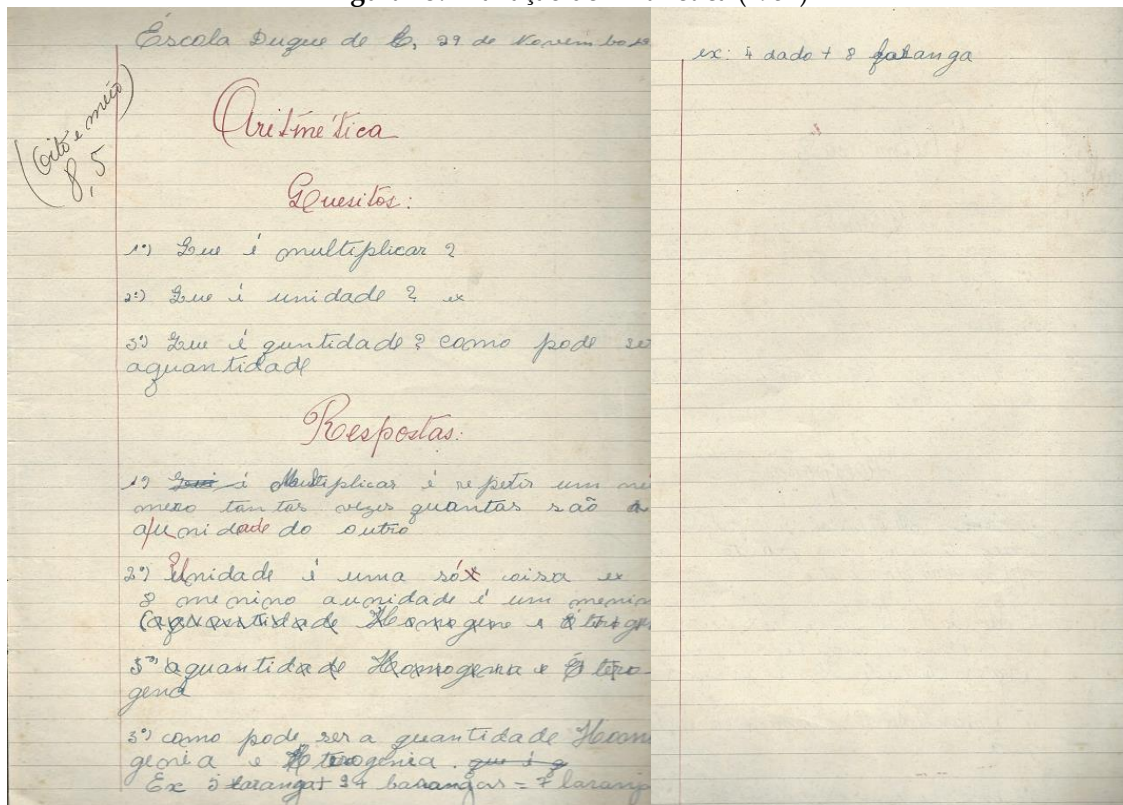 Escola Duque de C, 29 de Novembro
(oito e meio)
8,5
Aritmética
Quesitos:
1º) Que é multiplicar?
2º) Que é unidade? ex
3º) Que é guntidade? como pode se
aquantidade
Respostas:
1º) Que é Multiplicar é repetir um nú
mero tantas vezes quantas são a
aunidade do outro
2º) Unidade é uma só coisa ex
8 menino aunidade é um menin
(aquantidade Homogene e
3º) aquantidade Homogenia e Étero-
gena
3º) como pode ser a quantidade Homo
genia e Eterogenia. que é q
Ex 5 laranga+ = 7 laranj
ex: 4 dado + 8 galanga